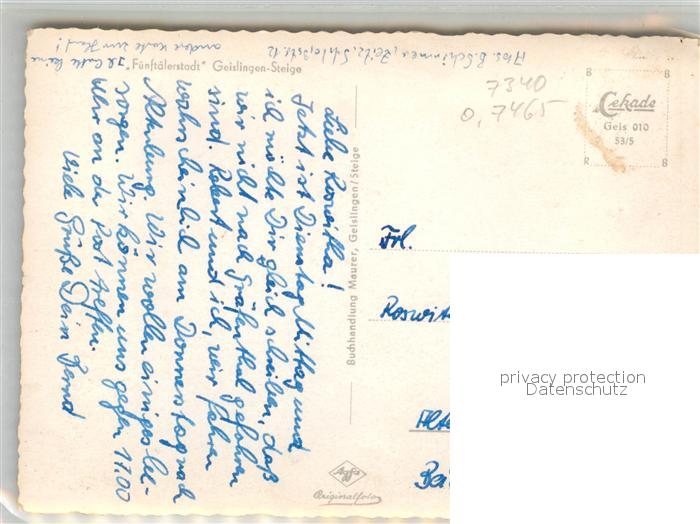 Abs. B. Schirmer, Zeitz, Schloßstr. 12
Ich hatte keine
andere Karte zur Hand!
"Fünftälerstadt" Geislingen-Steige
Liebe Roswitha!
Jetzt ist Dienstag Mittag und
ich möchte Dir gleich schreiben, daß
wir nicht nach Gräfenthal gefahren
sind. Robert und ich, wir fahren
wahrscheinlich am Donnerstag nach
Altenburg. Wir wollen einiges be-
sorgen. Wir können uns gegen 17.00
Uhr an der Post treffen.
Viele Grüße Dein Bernd
Buchhandlung Maurer, Geislingen/Steige
7340
0,7465
B B
Cekade
Geis 010
53/5
R B
Frl.
Roswit
Alte
Bei
Agfa
Originalfoto
privacy protection
Datenschutz